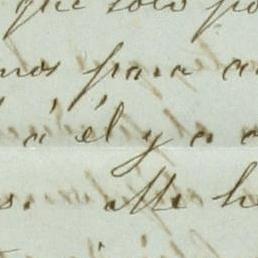 que solo po
mos para a
á él y a a
s. Me h